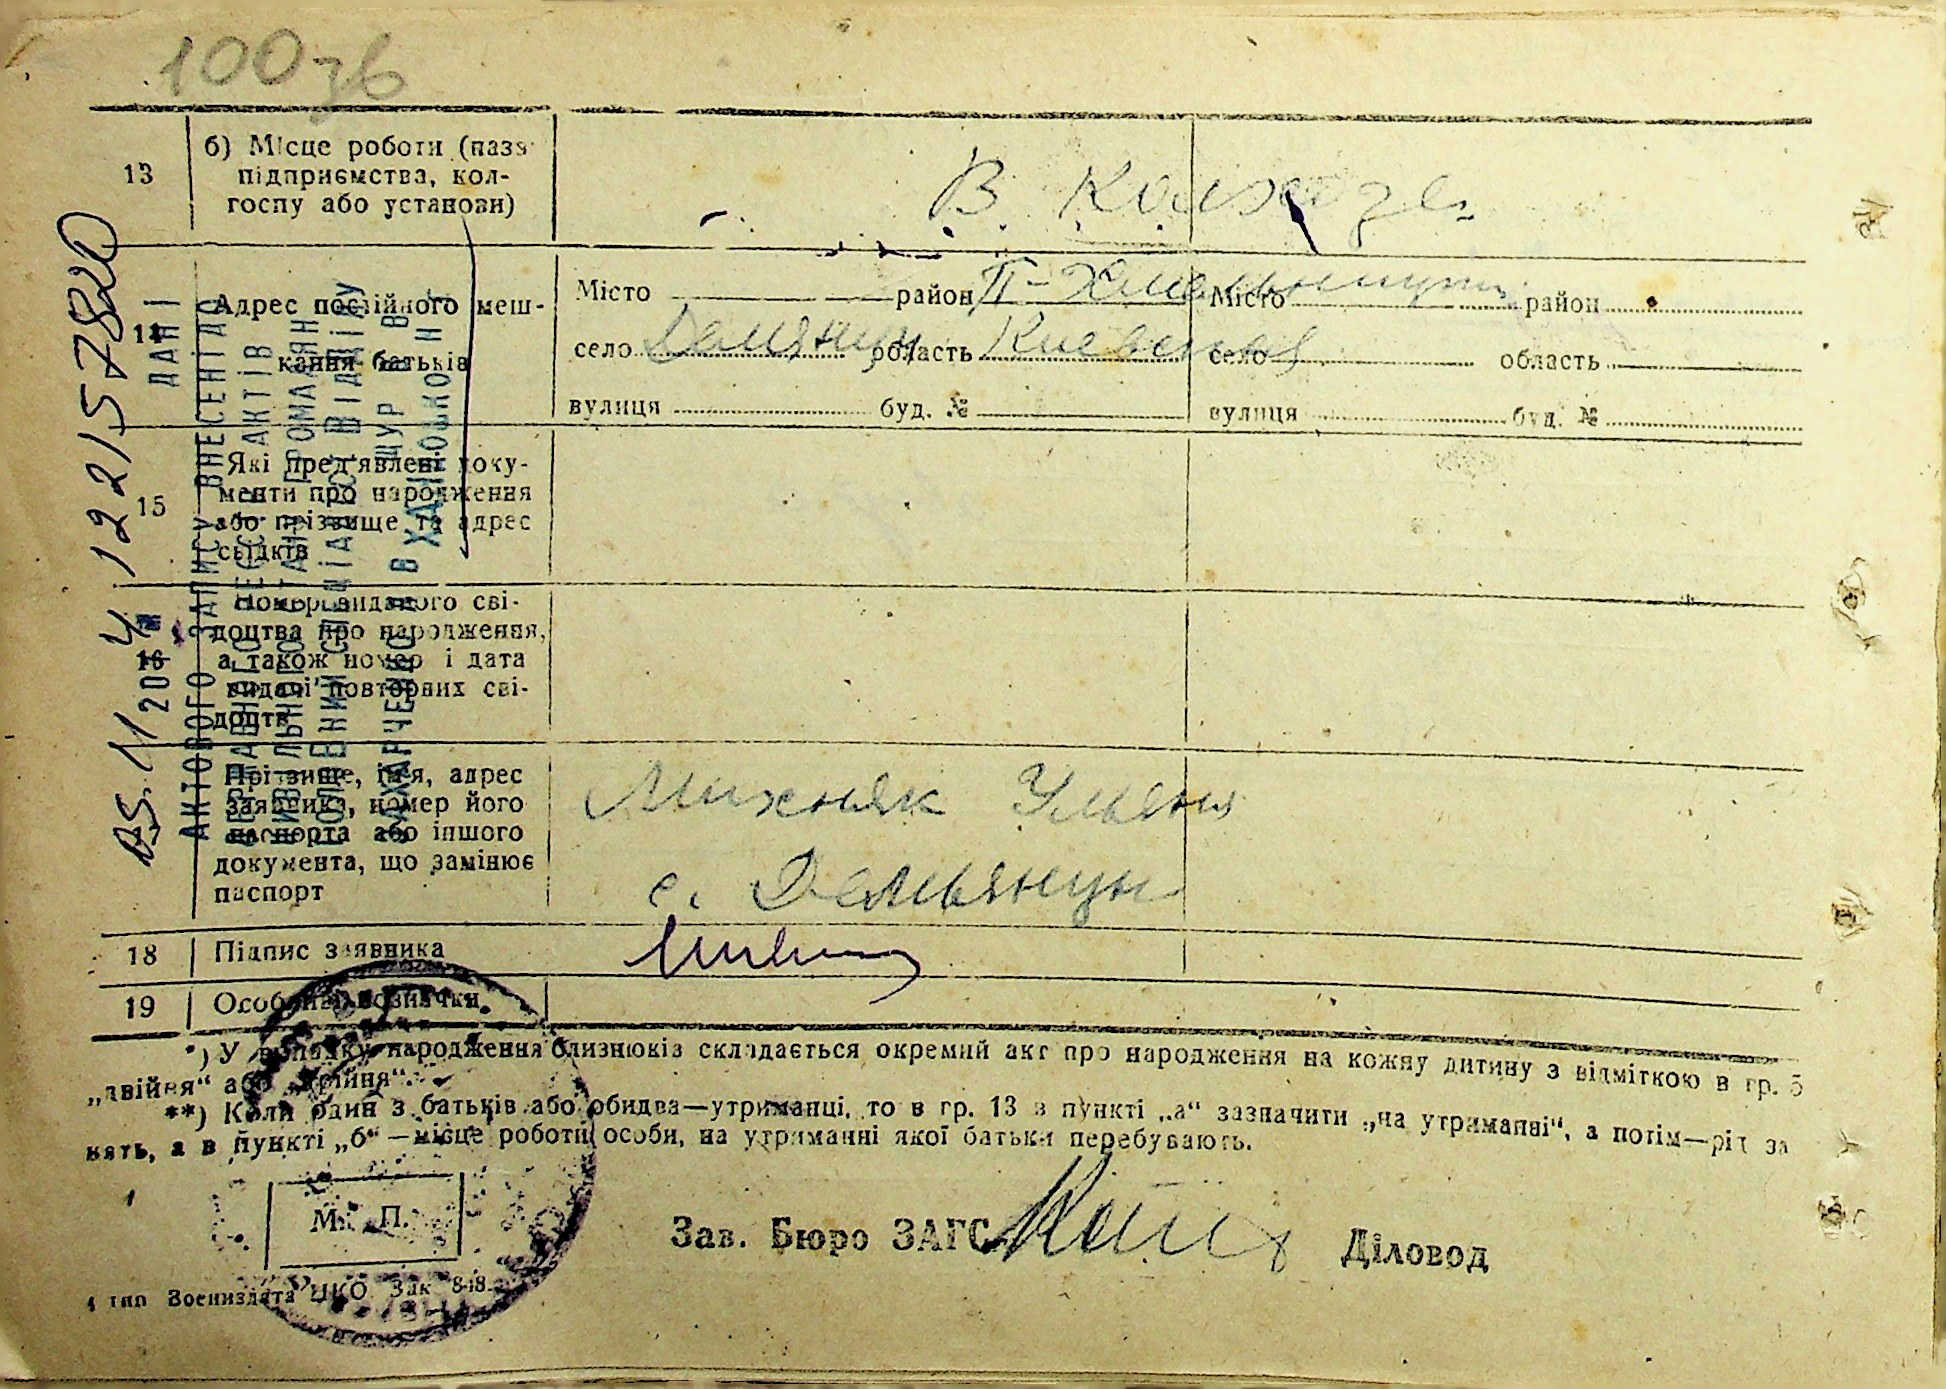 100зв
13
б) Місце роботи (назв
підприємства, кол-
госпу або установи)
В Колхозе
14
Адрес постійного меш-
кання батьків
Місто район П-Хмельницки
село Демянци область Киевская
вулиця буд. №
Місто район
село область
вулиця буд. №
15
Які пред'явлені доку-
менти про народження
або прізвище та адрес
свідків
16
Номер виданого сві-
доцтва про народження,
а також номер і дата
видачі повторних сві-
доцтв
Прізвище, ім'я, адрес
заявника, номер його
паспорта або іншого
документа, що замінює
паспорт
Михняк Ульяна
с. Демьянци
18 Підпис заявника
19 Особливі позначки
*) У випадку народження близнюків складається окремий акт про народження на кожну дитину з відміткою в гр. 5
„двійня“ або „трійня“.
**) Коли один з батьків або обидва—утриманці, то в гр. 13 в пункті „а“ зазначити „на утриманні“, а потім—рід за
нять, а в пункті „б“—місце роботи особи, на утриманні якої батьки перебувають.
М. П.
Зав. Бюро ЗАГС
Діловод
4 тип Воениздата НКО Зак 848
ДАНІ
АКТОВОГО ЗАПИСУ ВНЕСЕНІ ДО
05.11 2004 122157820